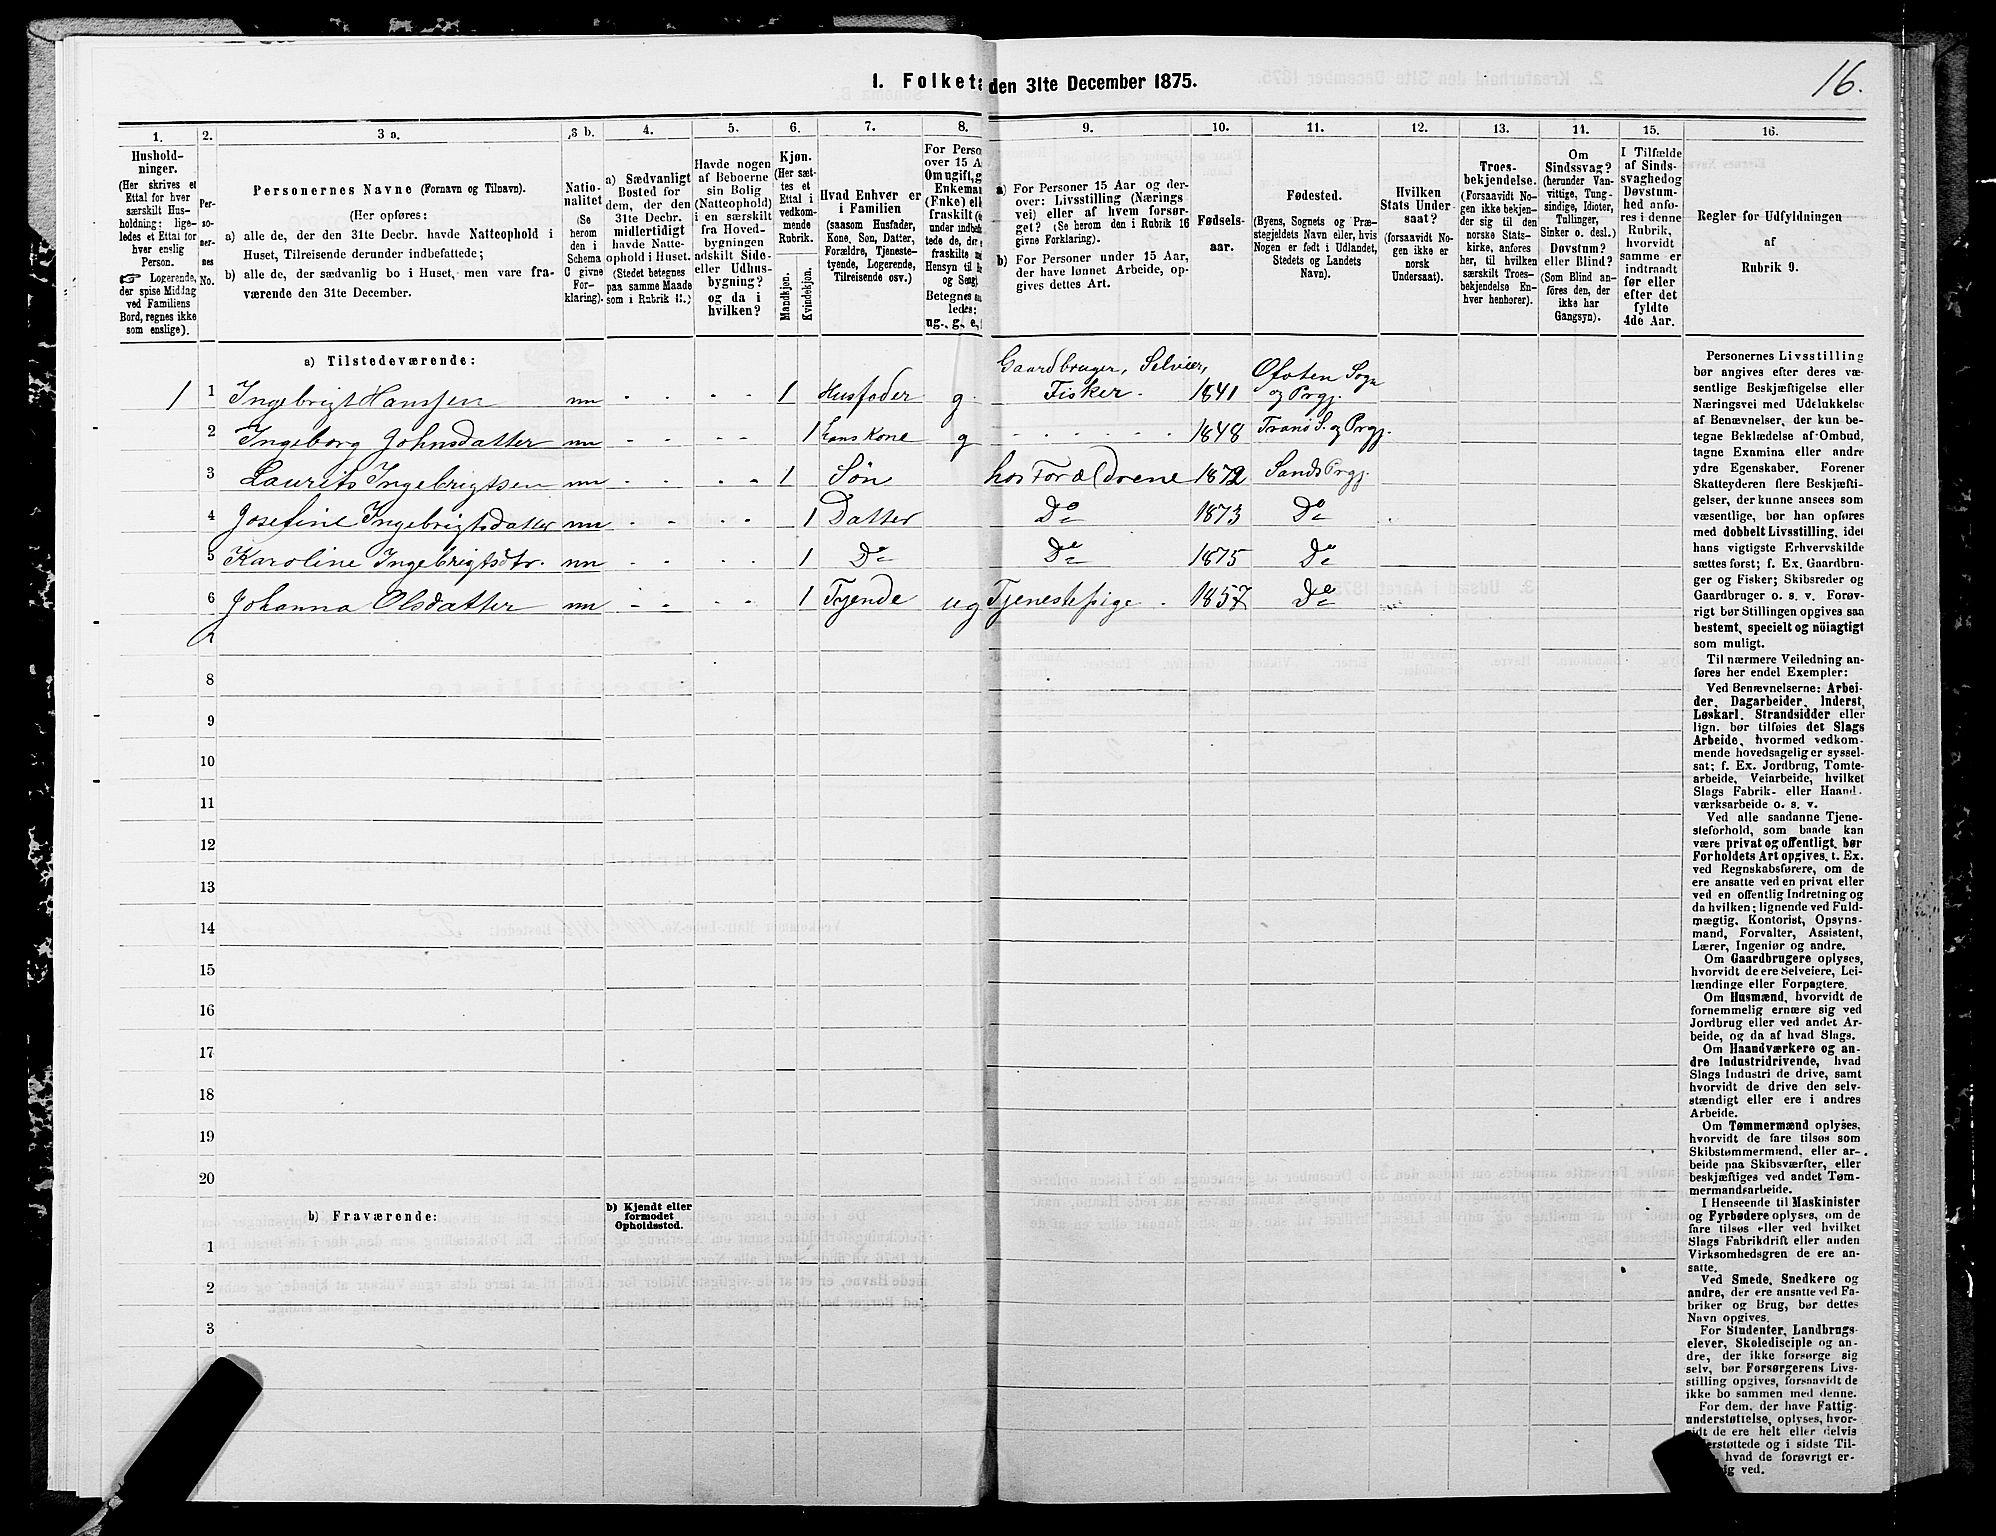 16.
1. Folket den 31te December 1875.
1. 2. 3 a. 3 b. 4. 5. 6. 7. 8. 9. 10. 11. 12. 13. 14. 15. 16.
Hushold-
ninger.
(Her skrives et
Ettal for hver
særskilt Hus-
holdning; lige-
ledes et Ettal for
hver enslig
Person.
☞ Logerende,
der spise Middag
ved Familiens
Bord, regnes ikke
som enslige).
Per-
so-
ner-
nes
No.
Personernes Navne (Fornavn og Tilnavn).
(Her opføres:
a) alle de, der den 31te Decbr. havde Natteophold i
Huset, Tilreisende derunder indbefattede;
b) alle de, der sædvanlig bo i Huset, men vare fra-
værende den 31te December.
Natio-
nalitet
(Se
herom
den i
Schema
C givne
For-
klaring).
a) Sædvanligt
Bosted for
dem, der den
31te Decbr.
midlertidigt
havde Natte-
ophold i Huset.
(Stedet betegnes
paa samme Maade
som i Rubrik 11.)
Havde nogen
af Beboerne
sin Bolig
(Natteophold)
i en særskilt
fra Hoved-
bygningen
adskilt Side-
eller Udhus-
bygning?
og da i
hvilken?
Kjøn.
(Her sæt-
tes et
Ettal i
vedkom-
mende
Rubrik.
Mandkjøn.
Kvindekjøn.
Hvad Enhver er
i Familien
(saasom Husfader,
Kone, Søn, Datter,
Forældre, Tjeneste-
tyende, Logerende,
Tilreisende osv.)
For Perso
over 15 A
Om ugift, g
Enkema
(Enke) ell
fraskilt (
under indbe
tede de, der
fraskilte
Hensyn til
og Seng)
Betegnes
ledes:
ug., g., e.,
a) For Personer 15 Aar og der-
over: Livsstilling (Nærings
vei) eller af hvem forsør-
get? (Se herom den i Rubrik 16
givne Forklaring).
b) For Personer under 15 Aar,
der have lønnet Arbeide, op-
gives dettes Art.
Fødsels-
aar.
Fødested.
(Byens, Sognets og Præ-
stegjeldets Navn eller, hvis
Nogen er født i Udlandet,
Stedets og Landets
Navn).
Hvilken
Stats Under
saat?
(forsaavidt No-
gen ikke er
norsk
Undersaat).
Troes-
bekjendelse.
(Forsaavidt No-
gen ikke bekjen-
der sig til den
norske Stats-
kirke, anføres
her, til hvilken
særskilt Troes-
bekjendelse En-
hver henhører).
Om
Sindssvag?
(herunder Van-
vittige, Tung-
sindige, Idioter,
Tullinger,
Sinker o. desl.)
Døvstum?
eller Blind?
(Som Blind an-
føres den, der
ikke har
Gangsyn).
I Tilfælde
af Sinds-
svaghed og
Døvstum-
hed anfø-
res i denne
Rubrik,
hvorvidt
samme er
indtraadt
før eller
efter det
fyldte
4de Aar.
Regler for Udfyldningen
af
Rubrik 9.
a) Tilstedeværende:
1 1 Ingebrigt Hanssen nn 1 Husfader g. Gaardbruger, Selveier, Fisker. 1841 Ofoten Sogn og Prgj.
2 Ingeborg Johnsdatter nn 1 hans Kone g 1848 Tranø S. og Prgj.
3 Laurits Ingebrigtsen nn 1 Søn hos Forældrene 1872 Sands Prgj.
4 Josefine Ingebrigtsdatter nn 1 Datter Do 1873 Do
5 Karoline Ingebrigtsdtr. nn 1 Do Do 1875 Do
6 Johanna Olsdatter nn 1 Tyende ug Tjenestepige. 1857 Do
7
8
9
10
11
12
13
14
15
16
17
18
19
20
b) Fraværende:
b) Kjendt eller
formodet
Opholdssted.
1
2
3
Personernes Livsstilling
bør angives efter deres væ-
sentlige Beskjæftigelse eller
Næringsvei med Udelukkelse
af Benævnelser, der kun be-
tegne Beklædelse af Ombud,
tagne Examina eller andre
ydre Egenskaber. Forener
Skatteyderen flere Beskjæfti-
gelser, der kunne ansees som
væsentlige, bør han opføres
med dobbelt Livsstilling, idet
hans vigtigste Erhvervskilde
sættes først; f. Ex. Gaardbru-
ger og Fisker; Skibsreder og
Gaardbruger o. s. v. Forøv-
rigt bør Stillingen opgives saa
bestemt, specielt og nöiagtigt
som muligt.
Til nærmere Veiledning an-
føres her endel Exempler:
Ved Benævnelserne: Arbei-
der, Dagarbeider, Inderst,
Løskarl, Strandsidder eller
lign. bør tilføies det Slags
Arbeide, hvormed vedkom-
mende hovedsagelig er syssel-
sat; f. Ex. Jordbrug, Tomte-
arbeide, Veiarbeide, hvilket
Slags Fabrik- eller Haand-
værksarbeide o. s. v.
Ved alle saadanne Tjene-
steforhold, som baade kan
være privat og offentligt, bør
Forholdets Art opgives, t. Ex.
ved Regnskabsførere, om de
ere ansatte ved en privat eller
ved en offentlig Indretning og
da hvilken; lignende ved Fuld-
mægtig, Kontorist, Opsyns-
mand, Forvalter, Assistent,
Lærer, Ingeniør og andre.
Om Gaardbrugere oplyses,
hvorvidt de ere Selveiere, Lei-
lændinge eller Forpagtere.
Om Husmænd, hvorvidt de
fornemmelig ernære sig ved
Jordbrug eller ved andet Ar-
beide, og da af hvad Slags.
Om Haandværkere og an-
dre Industridrivende, hvad
Slags Industri de drive, samt
hvorvidt de drive den selv-
stændigt eller ere i andres
Arbeide.
Om Tømmermænd oplyses,
hvorvidt de fare tilsøs som
Skibstømmermænd, eller ar-
beide paa Skibsværfter, eller
beskjæftiges ved andet Tøm-
mermandsarbeide.
I Henseende til Maskinister
og Fyrbødere oplyses, om de
fare tilsøs eller ved hvilket
Slags Fabrikdrift eller anden
Virksomhedsgren de ere an-
satte.
Ved Smede, Snedkere og
andre, der ere ansatte ved Fa-
briker og Brug, bør dettes
Navn opgives.
For Studenter, Landbrugs-
elever, Skoledisciple og an-
dre, der ikke forsørge sig
selv, bør Forsørgerens Livs-
stilling opgives, forsaavidt de
ikke bo sammen med denne.
For dem, der have Fattig-
understøttelse, oplyses, hvor-
idt de ere helt eller delvis
erstøttede og i sidste Til-
hvad de forøvrigt er-
ig ved.